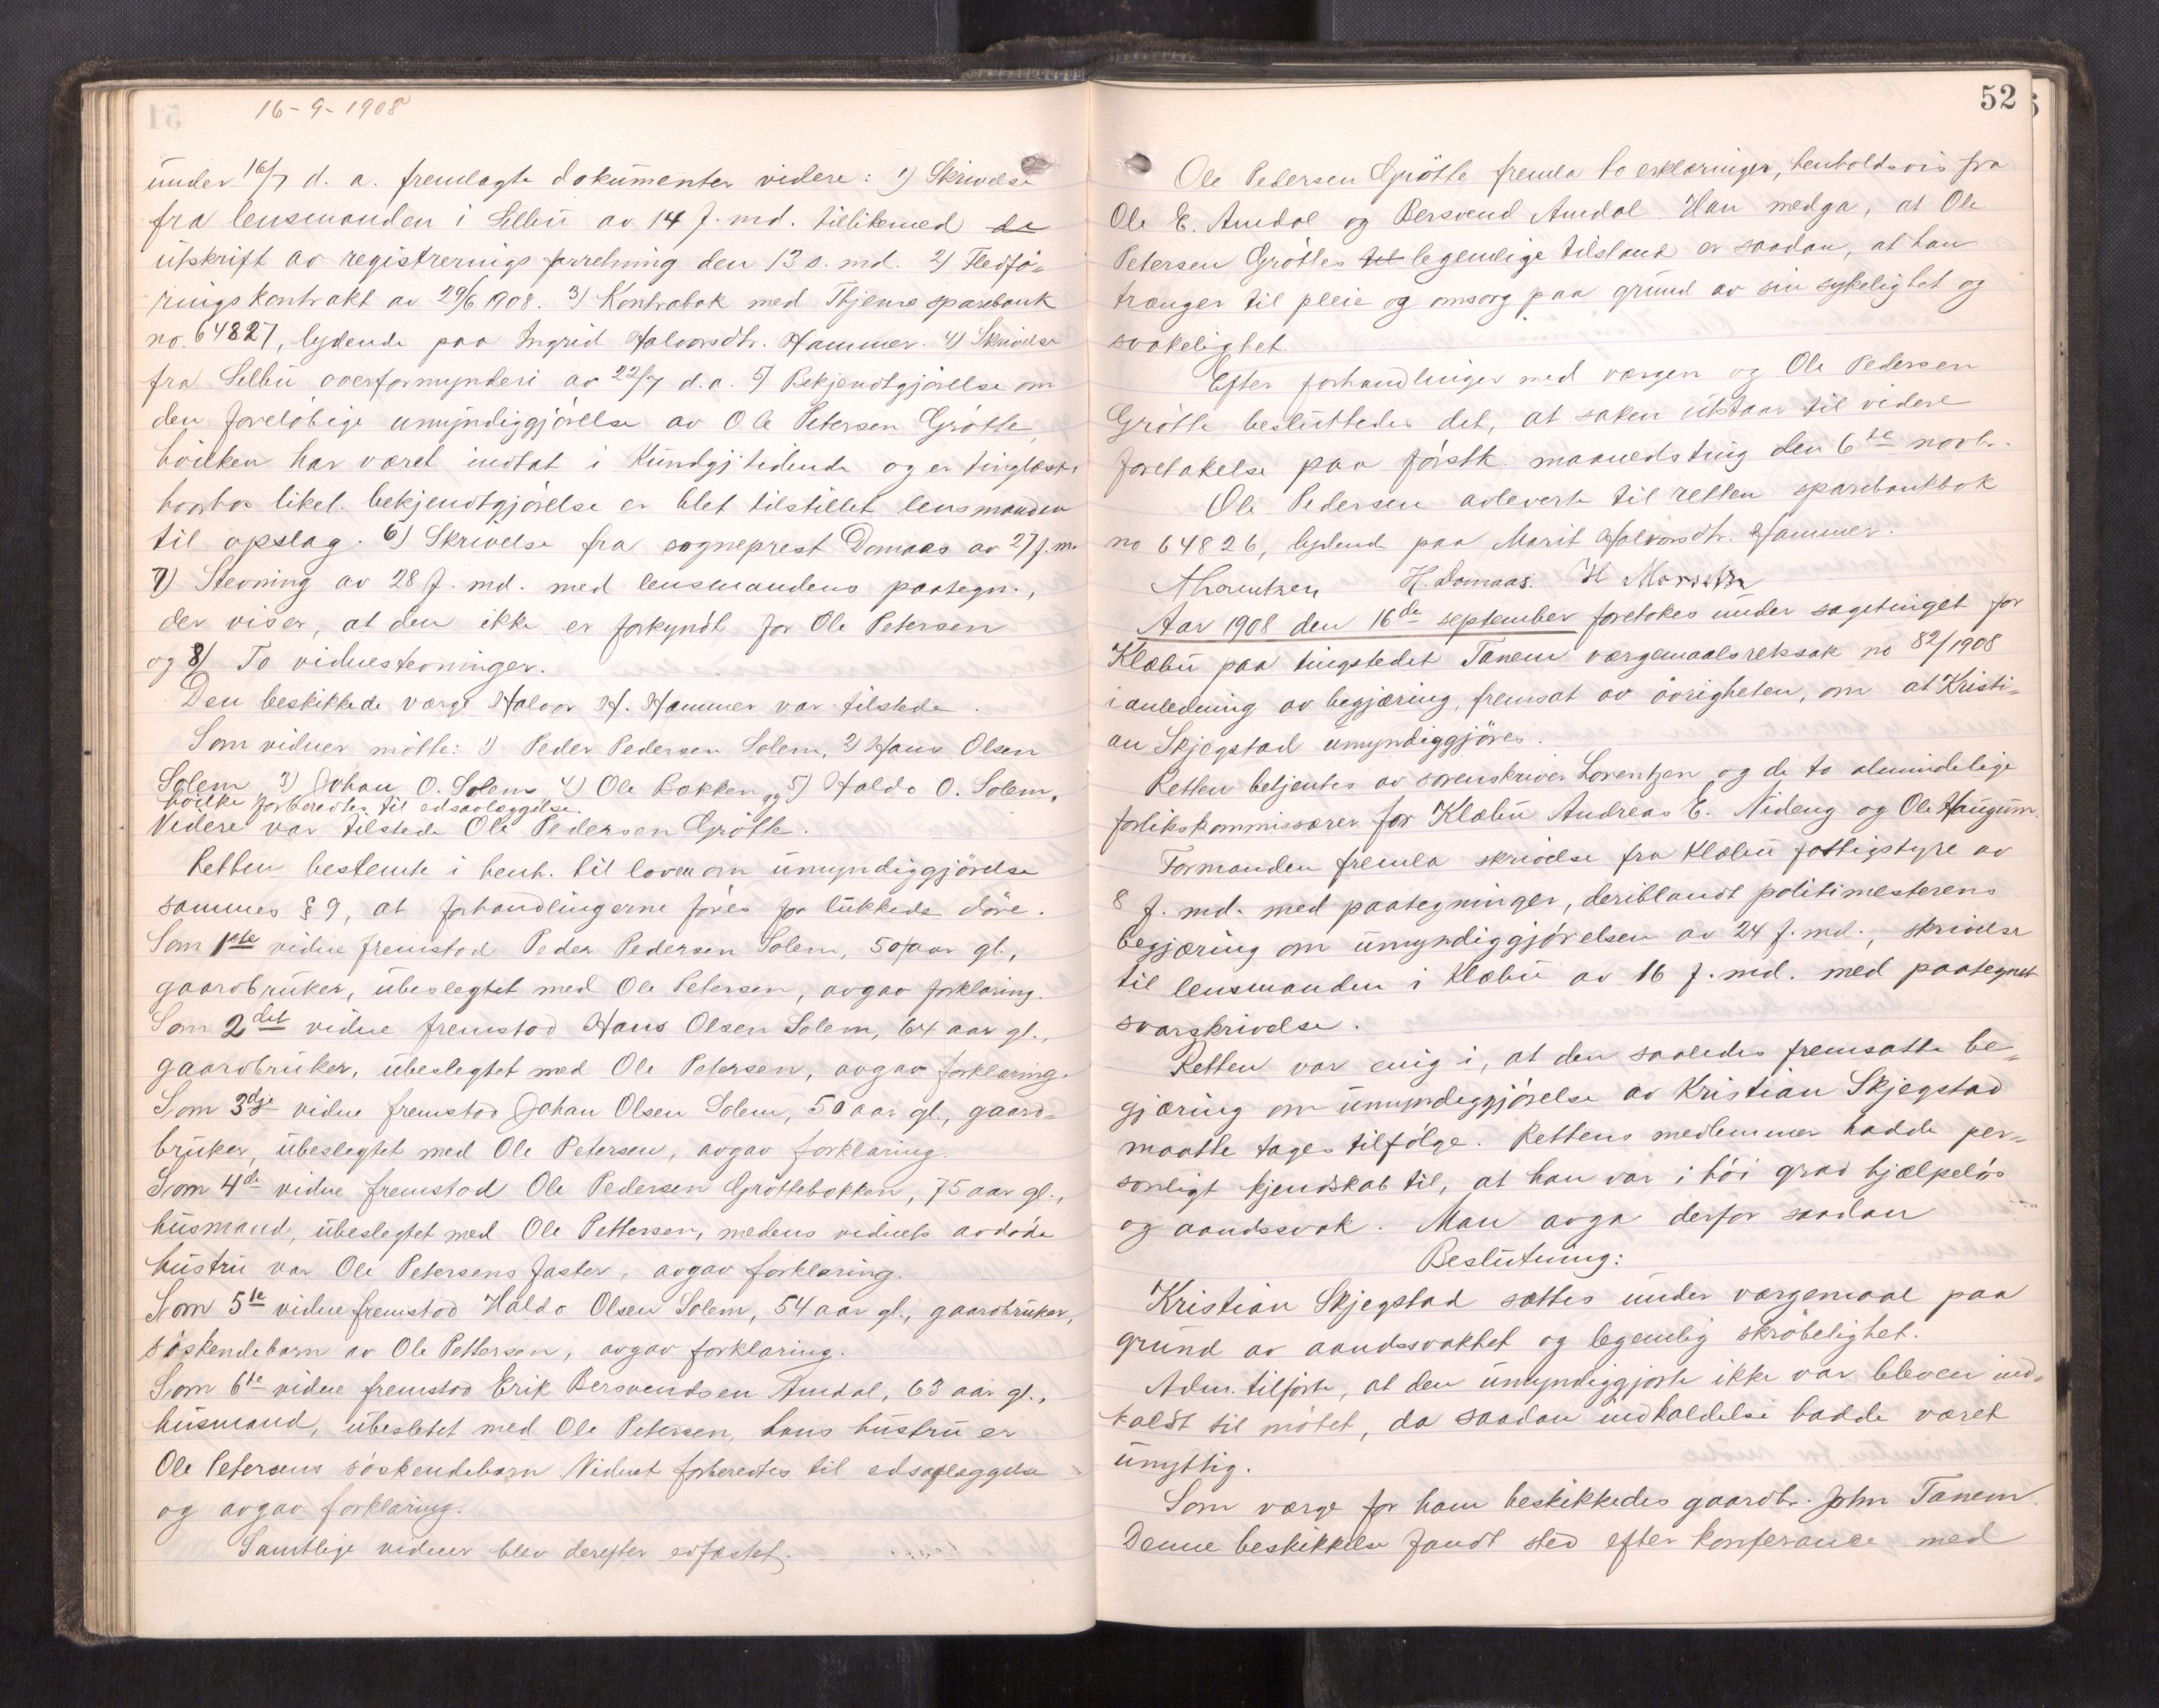 16-9-1908
under 16/7 d. a. fremlagte dokumenter videre: 1) Skrivelse
fra lensmanden i Selbu av 14 f. md. tillikemed de
utskrift av registreringsforretning den 13 s. md. 2) Fledfø-
ringskontrakt av 29/6 1908. 3) Kontrabok med Thjems sparebank
no. 64827, lydende paa Ingrid Halvorsdtr. Hammer. 4) Skrivelse
fra Selbu overformynderi av 22/7 d. a. 5) Bekjendtgjørelse om
den foreløbige umyndiggjørelse av Ole Petersen Grøtte,
hvilken har været indtat i Kundgj.tidende og er tinglæst,
hvorhos likel. bekjendtgjørelse er blet tilstillet lensmanden
til opslag. 6) Skrivelse fra sogneprest Domaas av 27 f. m.
7) Stevning av 28 f. md. med lensmandens paategn.,
der viser, at den ikke er forkyndt for Ole Petersen
og 8) To vidnestevninger.
Den beskikkede værge Halvor H. Hammer var tilstede.
Som vidner møtte: 1) Peder Pedersen Solem, 2) Hans Olsen
Solem, 3) Johan O. Solem, 4) Ole Bakken og 5) Haldo O. Solem,
hvilke forberedtes til edsavlæggelse.
Videre var tilstede Ole Pedersen Grøtte.
Retten bestemte i henh. til loven om umyndiggjørelse
sammes § 9, at forhandlingerne føres for lukkede døre.
Som 1ste vidne fremstod Peder Pedersen Solem, 50 aar gl.,
gaardbruker, ubeslegtet med Ole Petersen, avgav forklaring.
Som 2det vidne fremstod Hans Olsen Solem, 64 aar gl.,
gaardbruker, ubeslegtet med Ole Petersen, avgav forklaring.
Som 3dje vidne fremstod Johan Olsen Solem, 50 aar gl., gaard-
bruker, ubeslegtet med Ole Petersen, avgav forklaring.
Som 4de vidne fremstod Ole Pedersen Grøttebakken, 75 aar gl.,
husmand, ubeslegtet med Ole Pettersen, medens vidnets avdøde
hustru var Ole Petersens faster, avgav forklaring.
Som 5te vidne fremstod Haldo Olsen Solem, 54 aar gl., gaardbruker,
søskendebarn av Ole Pettersen, avgav forklaring.
Som 6te vidne fremstod Erik Bersvendsen Amdal, 63 aar gl.,
husmand, ubesletet med Ole Petersen, hans hustru er
Ole Petersens søskendebarn Vidnet forberedtes til edsaflæggelse
og avgav forklaring.
Samtlige vidner blev derefter edfæstet.
52
Ole Pedersen Grøtte fremla to erklæringer, henholdsvis fra
Ole E. Amdal og Bersvend Amdal. Han medga, at Ole
Petersen Grøttes til legemlige tilstand er saadan, at han
trænger til pleie og omsorg paa grund av sin sykelighet og
svakelighet.
Efter forhandlinger med værgen og Ole Pedersen
Grøtte besluttedes det, at saken utstaar til videre
foretakelse paa førstk. maanedsting den 6te novbr.
Ole Pedersen avleverte til retten sparebankbok
no 64826, lydende paa Marit Halvorsdtr. Hammer.
A Lorentzen H. Domaas. H Morseth
Aar 1908 den 16de september foretokes under sagetinget for
Klæbu paa tingstedet Tanem værgemaalsretssak no 82/1908
i anledning av begjæring, fremsat av øvrigheten, om at Kristi-
an Skjegstad umyndiggjøres.
Retten betjentes av sorenskriver Lorentzen og de to almindelige
forlikskommissærer for Klæbu Andreas E. Nideng og Ole Haugum.
Formanden fremla skrivelse fra Klæbu fattigstyre av
8 f. md. med paategninger, deriblandt politimesterens
begjæring om umyndiggjørelsen av 24 f. md., skrivelse
til lensmanden i Klæbu av 16 f. md. med paategnet
svarskrivelse.
Retten var enig i, at den saaledes fremsatte be-
gjæring om umyndiggjørelse av Kristian Skjegstad
maatte tages tilfølge. Rettens medlemmer hadde per-
sonligt kjendskab til, at han var i høi grad hjælpeløs
og aandssvak. Man avga derfor saadan
Beslutning:
Kristian Skjegstad sættes under værgemaal paa
grund av aandssvakhet og legemlig skrøbelighet.
Adm. tilførte, at den umyndiggjorte ikke var bleven ind-
kaldt til møtet, da saadan indkaldelse hadde været
unyttig.
Som værge for ham beskikkedes gaardbr. John Tanem.
Denne beskikkelse fandt sted efter konferance med